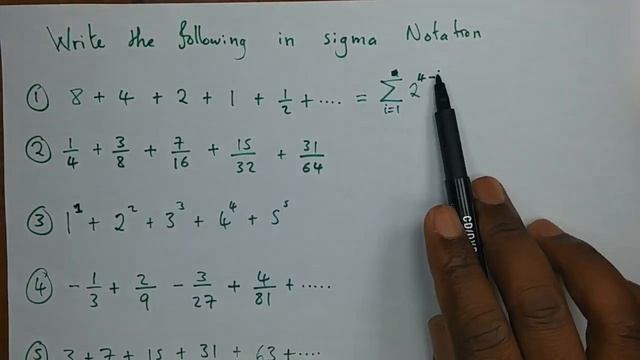 Write the following in sigma Notation
① 8 + 4 + 2 + 1 + 1/2 + .... = ∑ i=1 2^4-i
② 1/4 + 3/8 + 7/16 + 15/32 + 31/64
③ 1^1 + 2^2 + 3^3 + 4^4 + 5^5
④ -1/3 + 2/9 - 3/27 + 4/81 + .....
⑤ 3 + 7 + 15 + 31 + 63 + ....
CD/DVD